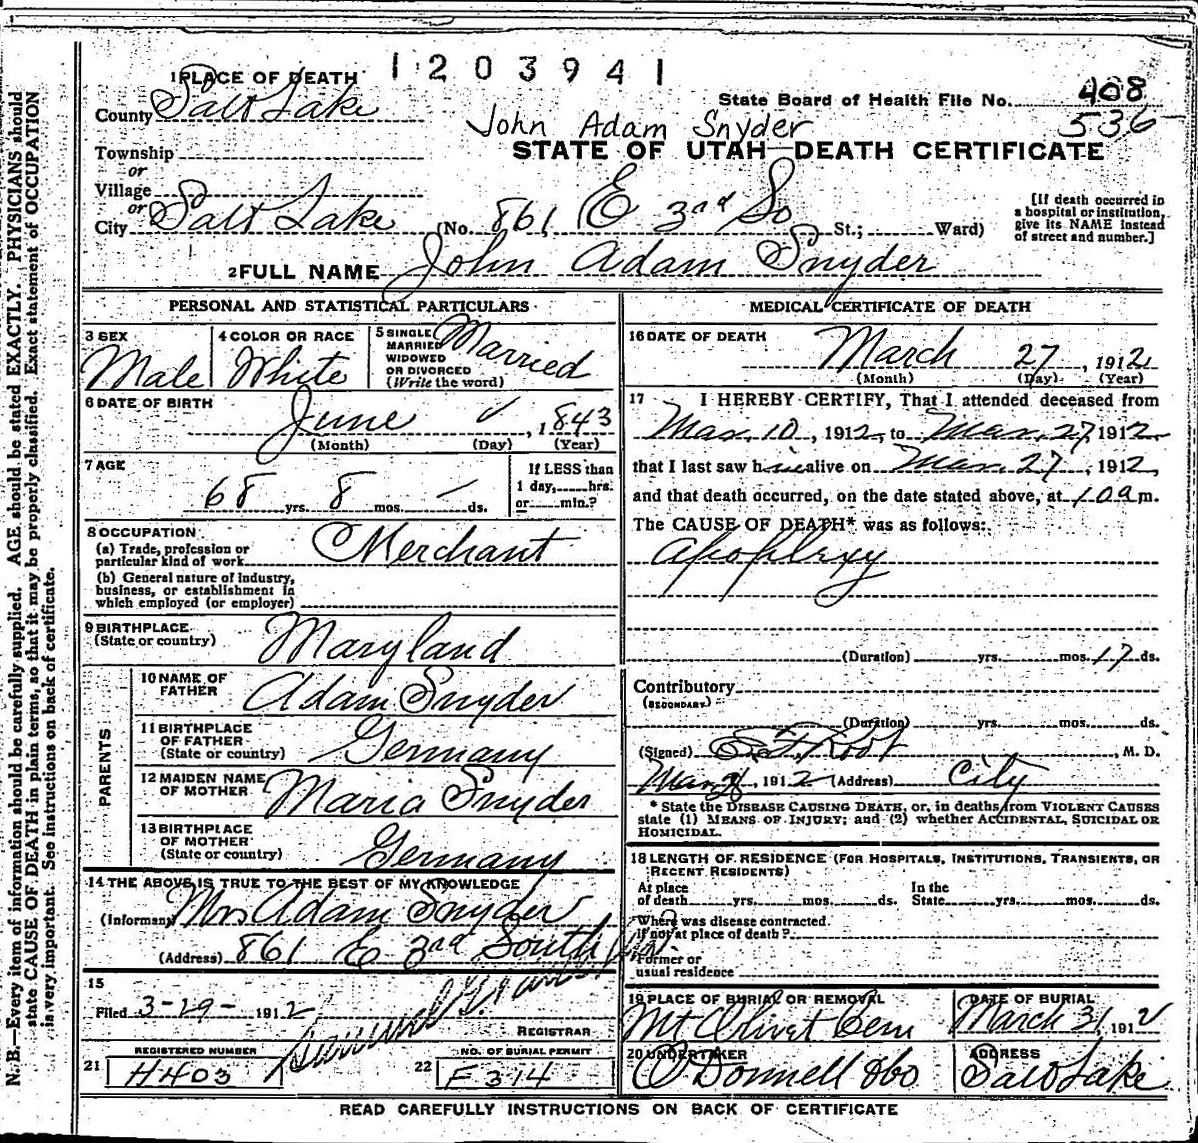 1203941
1 PLACE OF DEATH
County Salt Lake
State Board of Health File No. 408
536
John Adam Snyder
STATE OF UTAH—DEATH CERTIFICATE
Township
or
Village
or
City Salt Lake (No. 861 E 3rd So St.; Ward)
[If death occurred in
a hospital or institution,
give its NAME instead
of street and number.]
2 FULL NAME John Adam Snyder
PERSONAL AND STATISTICAL PARTICULARS
3 SEX
Male
4 COLOR OR RACE
White
5 SINGLE
MARRIED
WIDOWED
OR DIVORCED
(Write the word)
Married
6 DATE OF BIRTH
June ✓, 1843
(Month) (Day) (Year)
7 AGE
68 yrs. 8 mos. — ds.
If LESS than
1 day, hrs.
or min.?
8 OCCUPATION
(a) Trade, profession or
particular kind of work Merchant
(b) General nature of Industry,
business, or establishment in
which employed (or employer)
9 BIRTHPLACE
(State or country) Maryland
PARENTS
10 NAME OF
FATHER Adam Snyder
11 BIRTHPLACE
OF FATHER
(State or country) Germany
12 MAIDEN NAME
OF MOTHER Maria Snyder
13 BIRTHPLACE
OF MOTHER
(State or country) Germany
14 THE ABOVE IS TRUE TO THE BEST OF MY KNOWLEDGE
(Informant) Mrs Adam Snyder
(Address) 861 E 3rd South
15
Filed 3-29- 1912
REGISTRAR
REGISTERED NUMBER
21 H403
NO. OF BURIAL PERMIT
22 F314
MEDICAL CERTIFICATE OF DEATH
16 DATE OF DEATH
March 27, 1912
(Month) (Day) (Year)
17 I HEREBY CERTIFY, That I attended deceased from
Mar. 10, 1912, to Mar. 27, 1912.
that I last saw him alive on Mar. 27, 1912,
and that death occurred, on the date stated above, at 1 0 a m.
The CAUSE OF DEATH* was as follows:
Apoplexy
(Duration) yrs. mos. 17 ds.
Contributory
(SECONDARY)
(Duration) yrs. mos. ds.
(Signed) Root, M. D.
1912 (Address) City
* State the DISEASE CAUSING DEATH, or, in deaths from VIOLENT CAUSES
state (1) MEANS OF INJURY; and (2) whether ACCIDENTAL, SUICIDAL OR
HOMICIDAL.
18 LENGTH OF RESIDENCE (FOR HOSPITALS, INSTITUTIONS, TRANSIENTS, OR
RECENT RESIDENTS)
At place In the
of death yrs. mos. ds. State yrs. mos. ds.
Where was disease contracted.
If not at place of death?
Former or
usual residence
19 PLACE OF BURIAL OR REMOVAL
Mt Olivet Cem
DATE OF BURIAL
March 31, 1912
20 UNDERTAKER
O'Donnell & Co
ADDRESS
Salt Lake
READ CAREFULLY INSTRUCTIONS ON BACK OF CERTIFICATE
N. B.—Every item of information should be carefully supplied. AGE should be stated EXACTLY. PHYSICIANS should
state CAUSE OF DEATH in plain terms, so that it may be properly classified. Exact statement of OCCUPATION
is very important. See instructions on back of certificate.